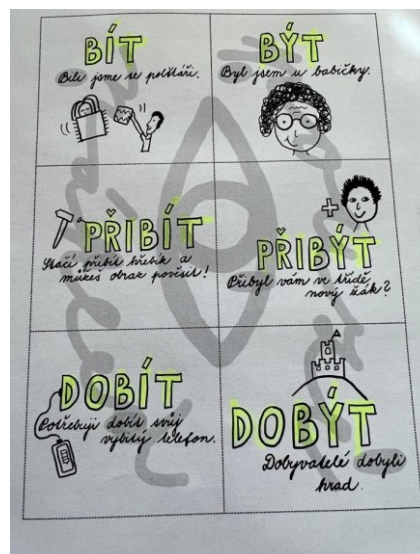 BÍT
Bili jsme se polštáři.
BÝT
Byl jsem u babičky.
PŘIBÍT
Stačí přibít hřebík a
můžeš obraz pověsit!
+
PŘIBÝT
Přibyl vám ve třídě
nový žák?
DOBÍT
Potřebuji dobít svůj
vybitý telefon.
DOBÝT
Dobyvatelé dobyli
hrad.